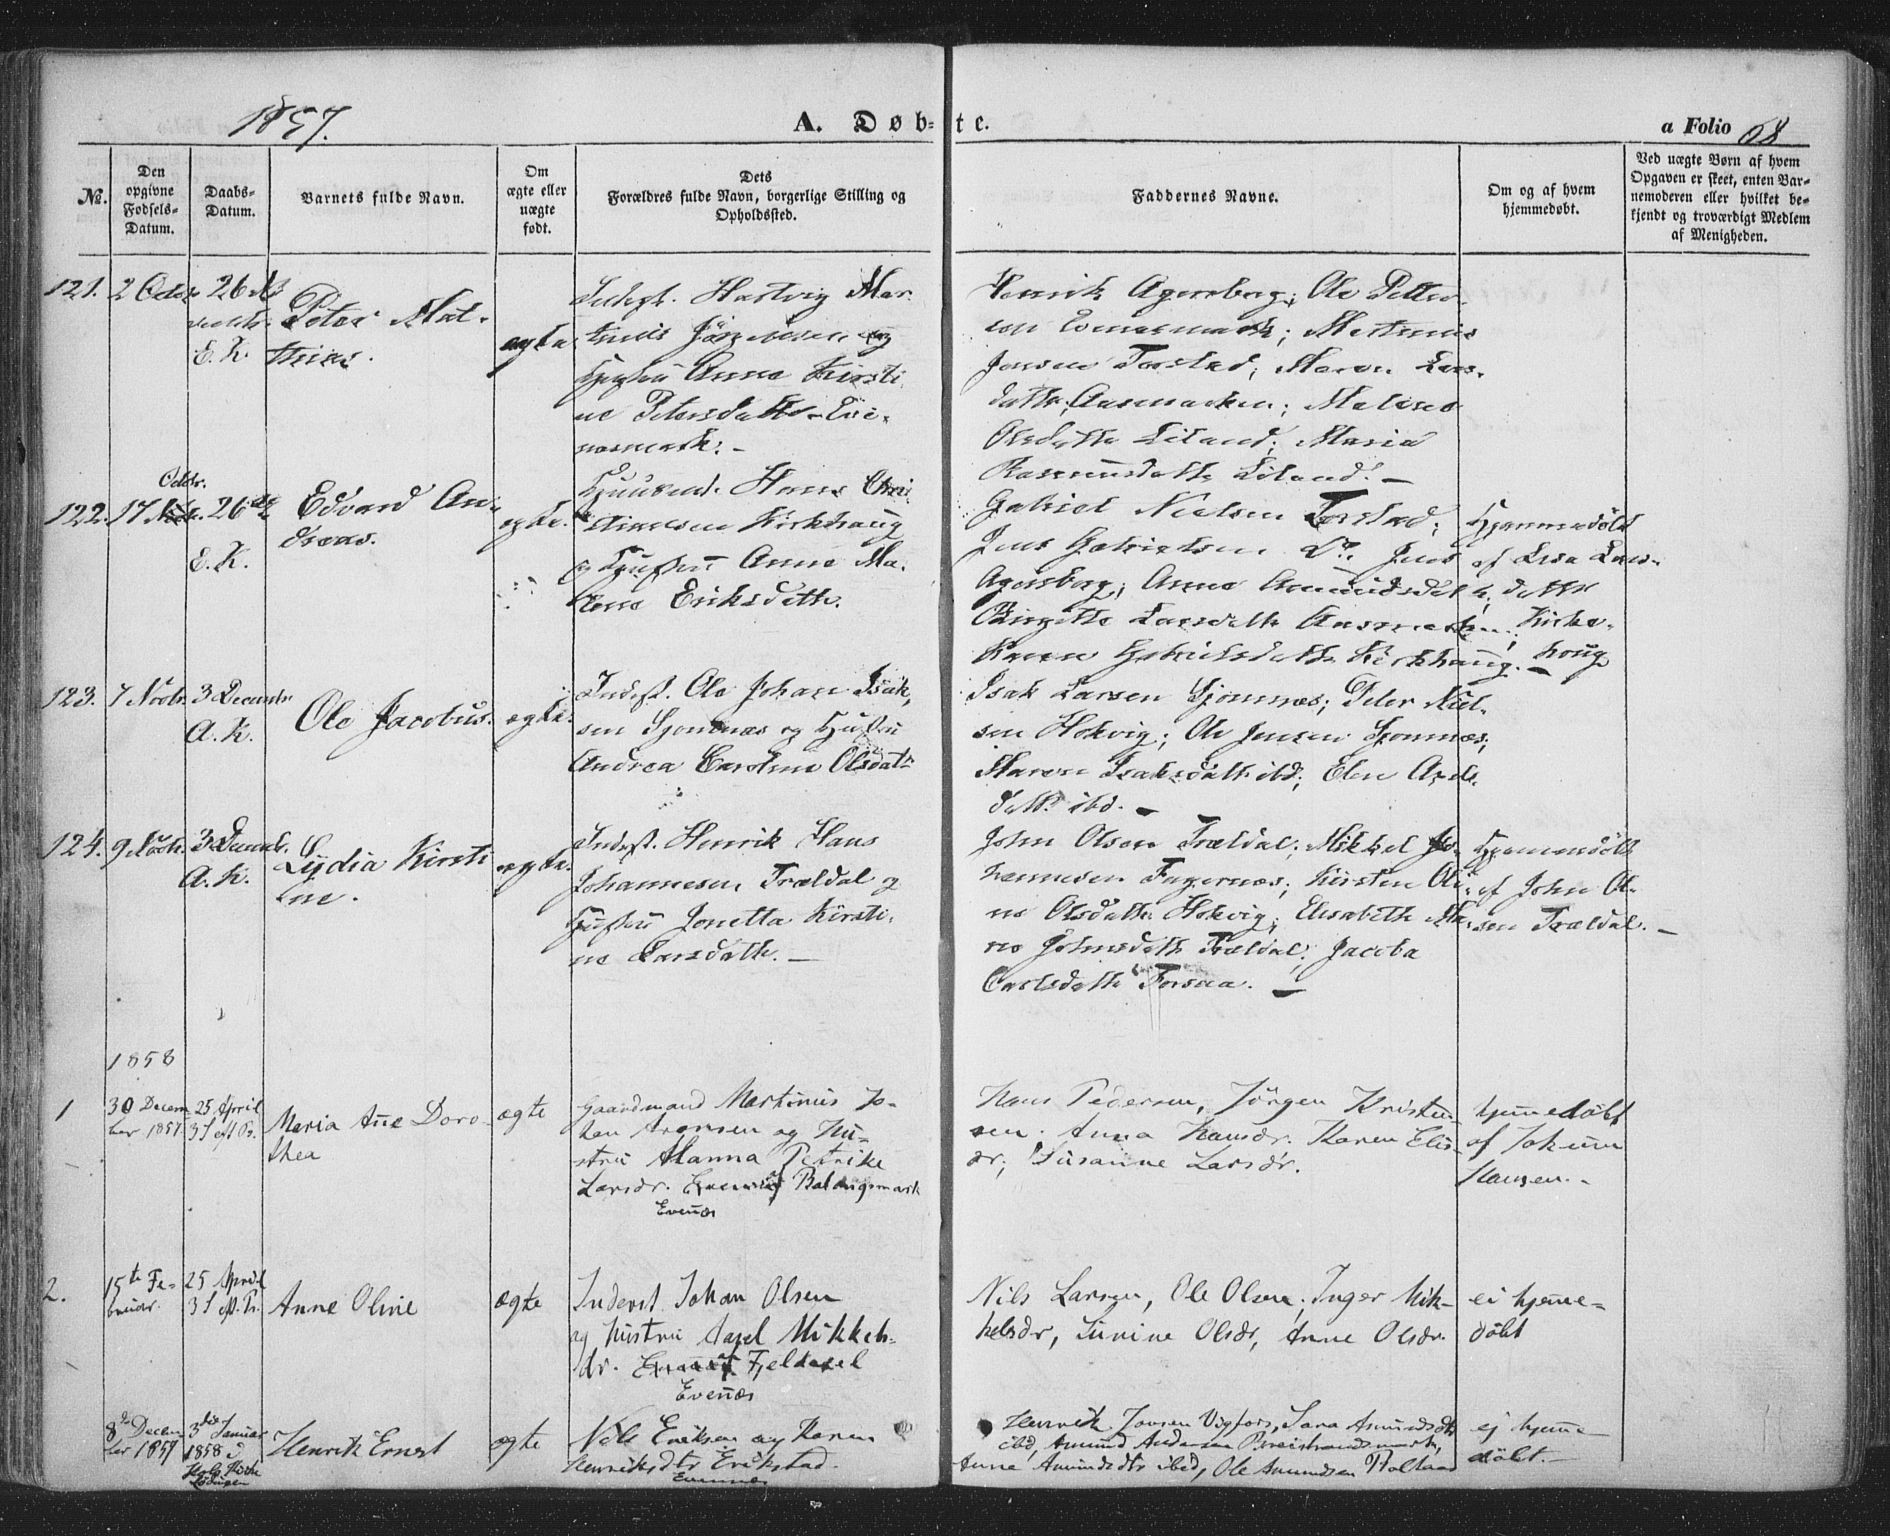 1857.
A. Døb-te.
a Folio 68
№.
Den
opgivne
Fødsels-
Datum.
Daabs-
Datum.
Barnets fulde Navn.
Om
ægte eller
uægte
født.
Dets
Forældres fulde Navn, borgerlige Stilling og
Opholdssted.
Faddernes Navne.
Om og af hvem
hjemmedøbt.
Ved uægte Børn af hvem
Opgaven er skeet, enten Bar-
nemoderen eller hvilket be-
kjendt og troværdigt Medlem
af Menigheden.
121.
2 Octbr
26
E. K.
Peter Mat-
thias.
ægte
Inderst. Hartvig Mar-
tinus Jörgensen og
Hustru Anne Kirsti-
ne Petersdatter Eve-
nesmark. -
Henrik Agersborg; Ole Petter-
sen Evenesmark; Martinus
Jensen Forstad; Maren Lars-
datter Aasmarken; Melisne
Olsdatter Liland; Maria
Rasmusdatter Liland. -
122.
Octbr.
17
26de
E. K.
Edvard An-
dreas.
ægte.
Huusmd. Hans Chri-
stiansen Kirkhaug
og Hustru Anne Ma-
lene Eriksdatter.
Gabriel Nielsen Forstad;
Jens Gabrielsen Do. Jens
Agersborg; Anne Amundsdatter;
Birgitte Larsdatter Aasmarken;
Karen Gabrielsdatter Kirkhaug. -
Hjemmedöbt
af Lisa Lars-
datter
Kirke-
houg
123.
7 Novbr.
3 Decembr
A. K.
Ole Jacobus.
ægte.
Inderst. Ole Johan Isak-
sen Sjomnæs og Hustru
Andrea Caroline Olsdatr
Isak Larsen Sjomnæs; Peter Niel-
sen Hokvig; Ole Jensen Sjomnæs;
Maren Isaksdatter ibd; Elen Ands-
datt. ibd. -
124.
9 Novbr.
3 Decembr.
A. K.
Lydia Kirsti-
ne.
ægte.
Inderst. Henrik Hans
Johannesen Trældal og
Hustru Jonetta Kirsti-
ne Larsdatter. -
John Olsen Trældal; Mikkel Jo-
hannesen Fagernæs; Kirsten Oli-
ne Olsdatter Hokvig; Elisabeth Ma-
ren Johnsdatter Trældal; Jacoba
Carlsdatter Forsaa. -
Hjemmedöbt
af John Ol-
sen Trældal. -
1858
1
30 Decem
ber 1857.
25 April
3 S eft P.
Maria Ane Doro-
thea
ægte
Gaardmand Martinus Jo-
han Aronsen og Hu-
stru Hanna Petrike
Larsdr. Balangsmark
Evenæs
Hans Pedersen, Jörgen Kristen-
sen. Anna Hansdr. Karen Elis-
dr; Susanne Larsdr.
hjemedøbt
af Jokum
Hansen. -
2.
15te Fe-
bruar.
25 April
3 S eft. P.
Anne Oline
ægte
Inderst Johan Olsen
og Hustru Mikkels-
dr. Fjeldaxel
Evenæs
Nils Larsen, Ole Olsen; Inger Mik-
kelsdr, Olsdr, Anne Olsdr.
ei hjeme-
døbt
8de Decem
ber 1857
3die Januar
1858 i
Kirke
Lødingen
Henrik Ernst
ægte
Nils Eriksen og Karen
Henriksdtr Erikstad.
Evenæs
Henrik Jansen Vigfors, Sara Amundsdtr
ibd, Amund Andersen Breistrandsmark,
Anne Amundsdtr ibid, Ole Amundsen
ej hjeme-
døbt. -